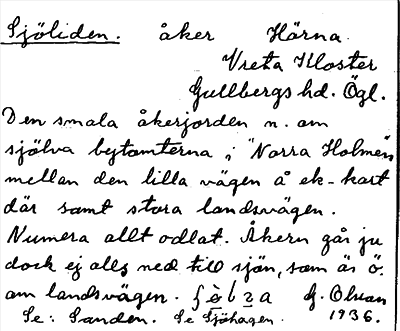 Sjöliden. åker Härna
Vreta Kloster
Gullbergs hd. Ögl.
Den smala åkerjorden n. om
själva bytomterna i "Norra Holmen"
mellan den lilla vägen å ek-kart
där samt stora landsvägen.
Numera allt odlat. Åkern går ju
dock ej alls ned till sjön, som är ö.
om landsvägen. G. Olsson
Se: Sanden. Se Sjöhagen. 1936.